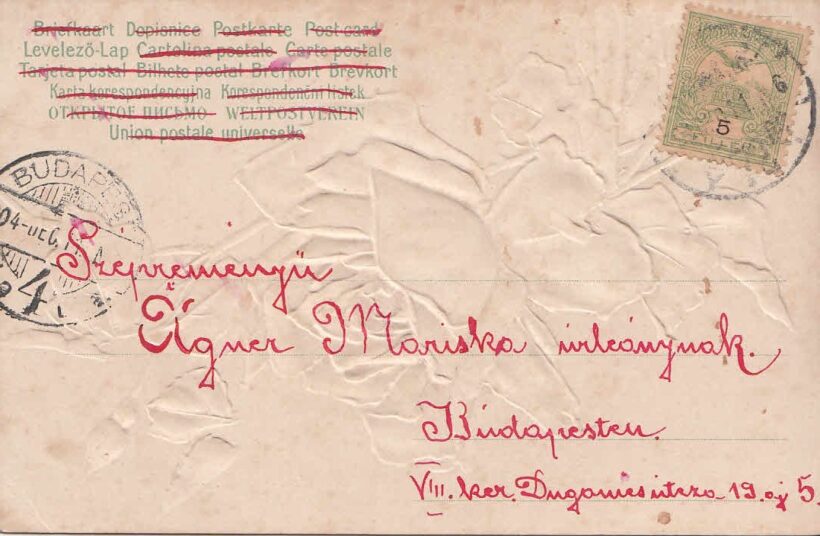 Briefkaart Dopisnice Postkarte Post card
Levelező-Lap Cartolina postale Carte postale
Tarjeta postal Bilhete postal Brefkort Brevkort
Karta korespondencyjna Korespondenčni listek
ОТКРЫТОЕ ПИСЬМО WELTPOSTVEREIN
Union postale universelle
5
FILLÉR
BUDAPEST
04 DEC
4
Szépreményü
Ágner Mariska úrleánynak.
Budapesten.
VIII. ker. Dugonicsutcza 19. aj 5.